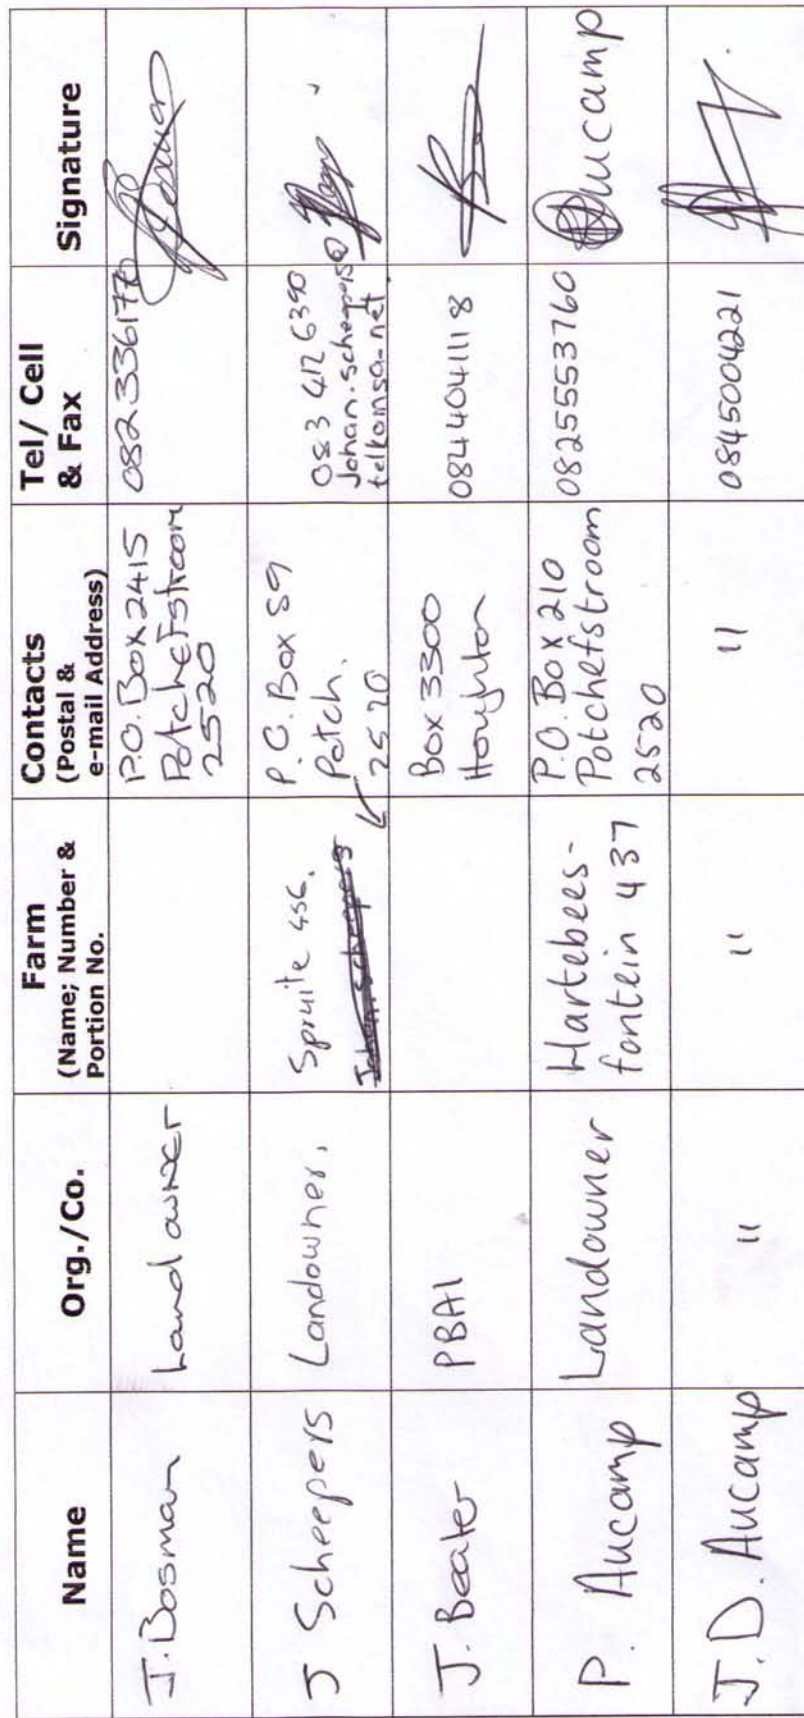 Name
Org./Co.
Farm
(Name; Number &
Portion No.
Contacts
(Postal &
e-mail Address)
Tel/ Cell
& Fax
Signature
J. Bosman
Land owner
P.O. Box 2415
Potchefstroom
2520
082 3361770
J Scheepers
Landowner.
Spruite 456.
Johan.scheepers
P.O. Box 59
Potch.
2520
083 412 6390
Johan.scheepers@
telkomsa.net
J. Beater
PBAI
Box 3300
Houghton
0844041118
P. Aucamp
Landowner
Hartebees-
fontein 437
P.O. Box 210
Potchefstroom
2520
0825553760
Aucamp
J.D. Aucamp
"
"
"
0845004221